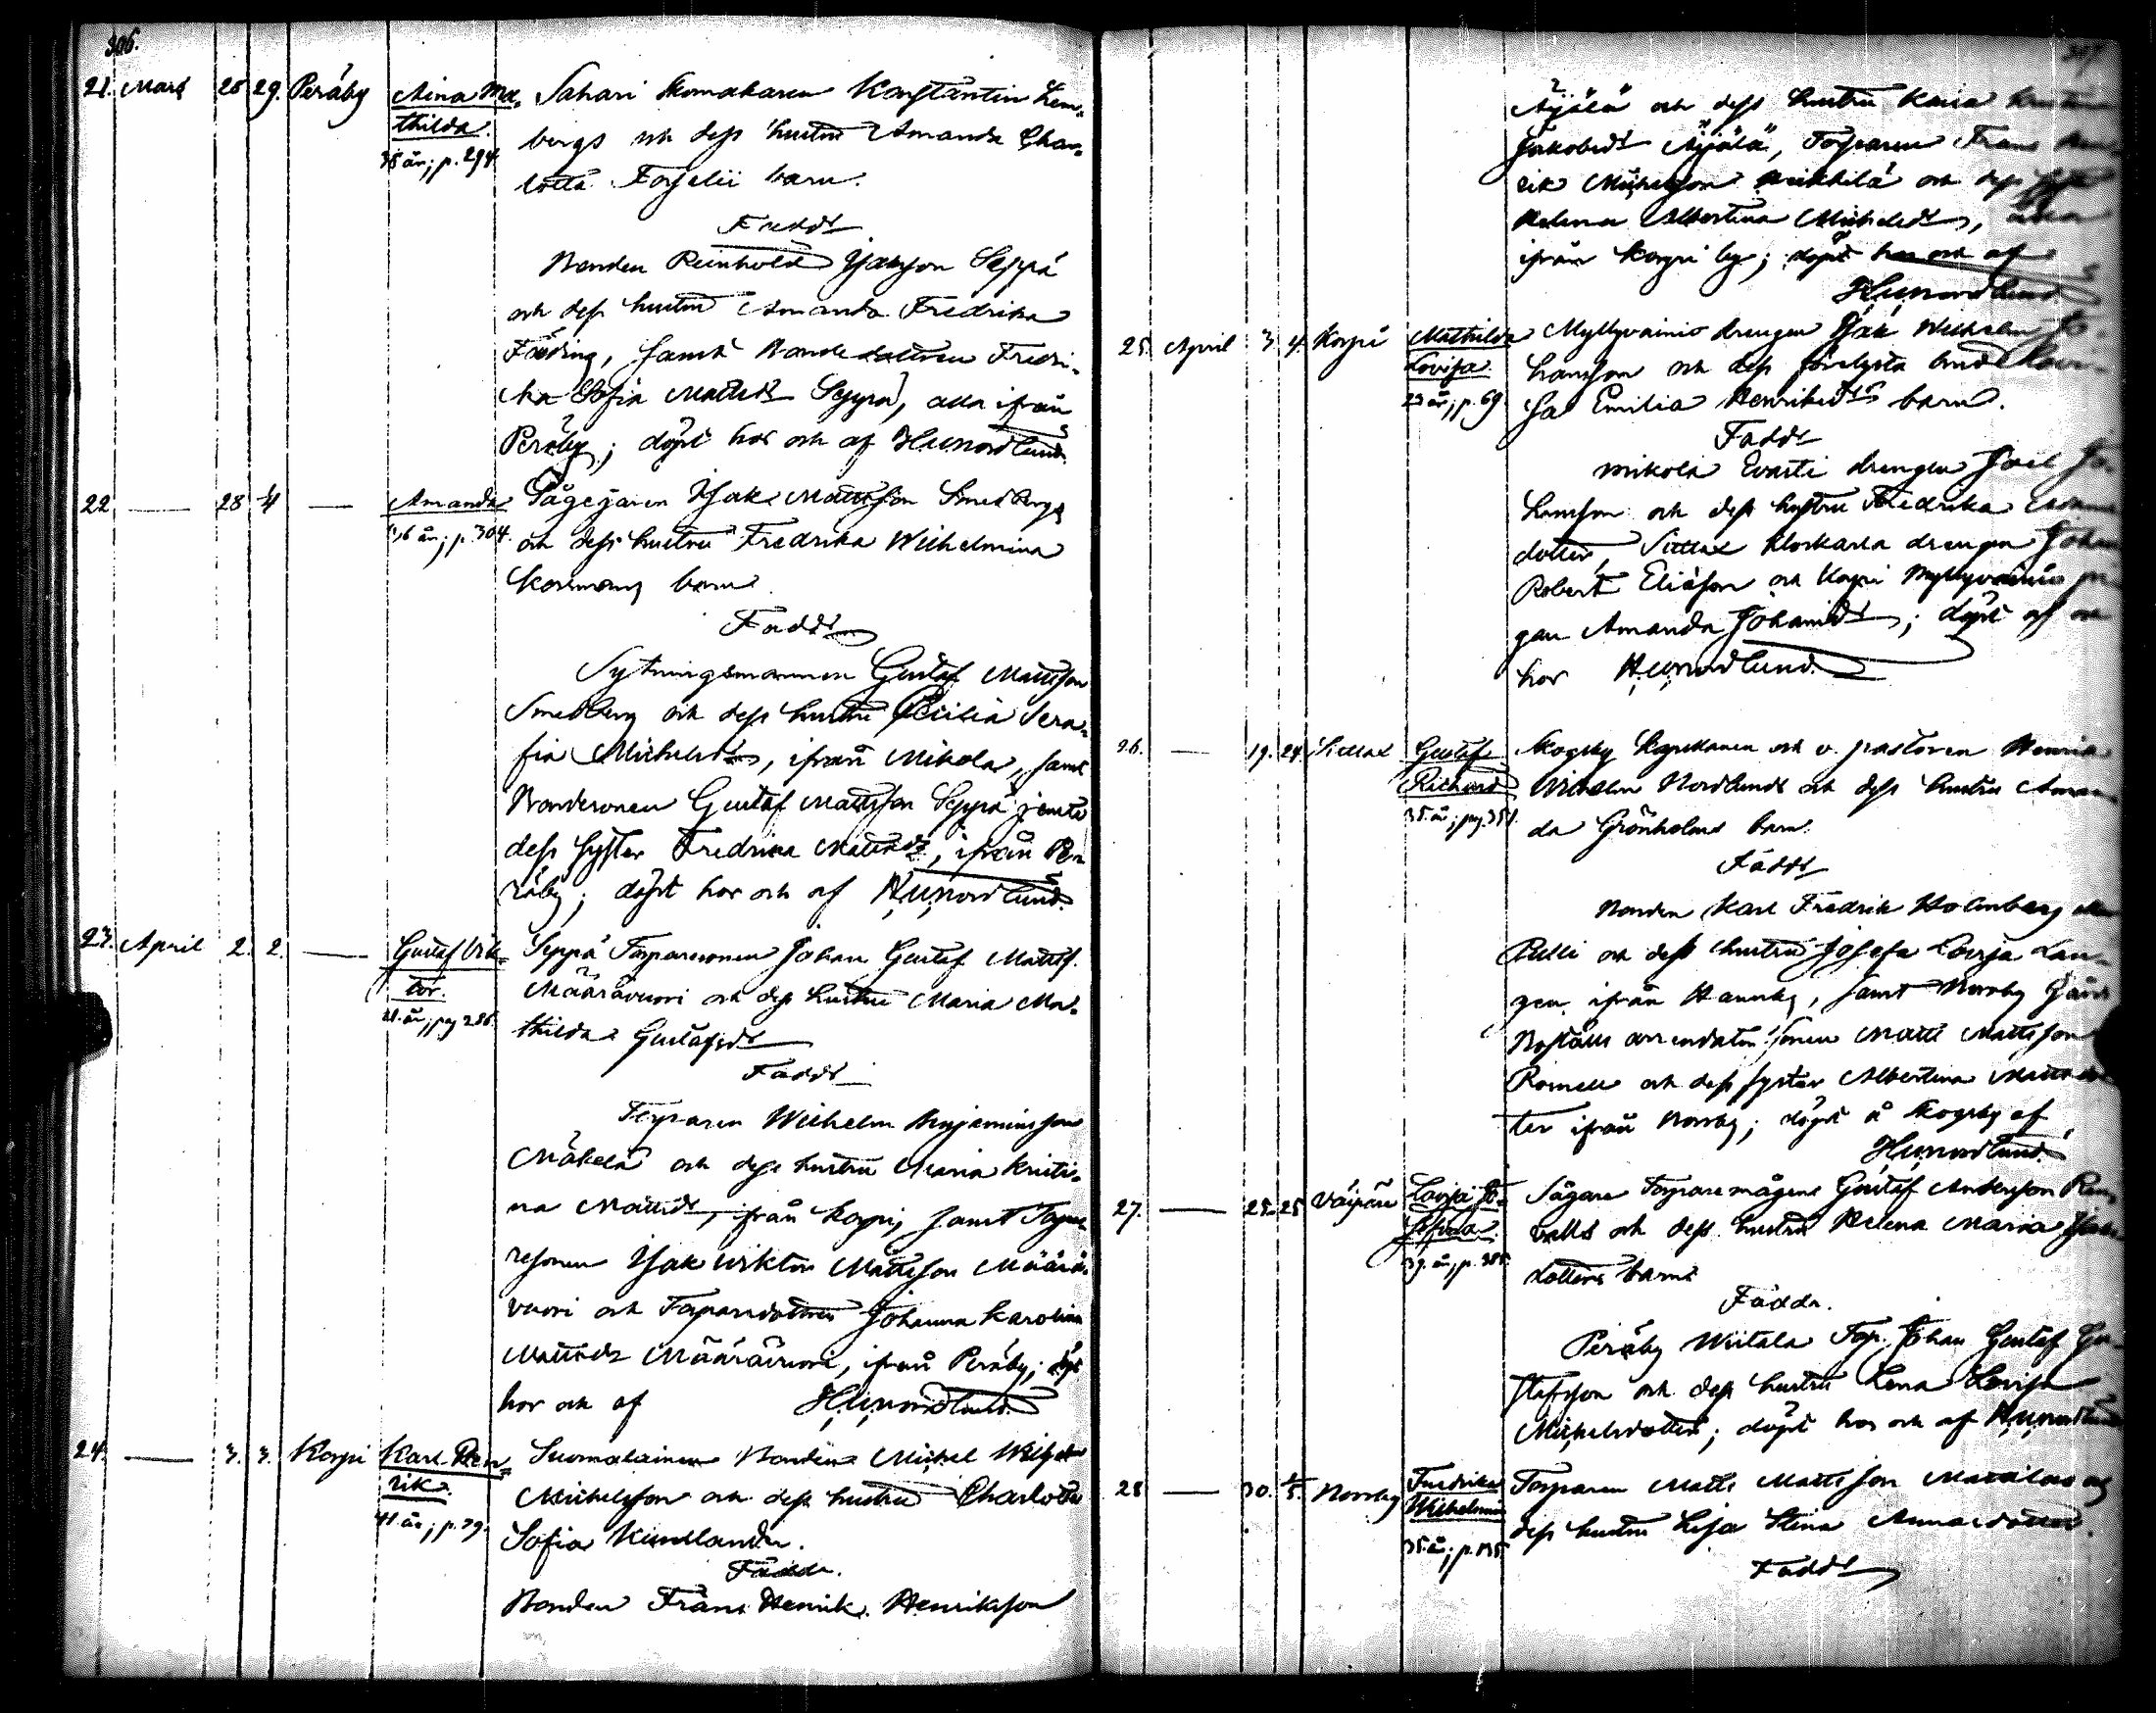 306.
21. Mars 28 29. Peräby Aina Ma= Sahari Skomakaren Konstantin Lem=
thilda. bergs och dess hustru Amanda Char=
38 år; p. 294. lotta Forselii barn.
Faddr
Bonden Reinhold Isaksson Seppä
och dess hustru Amanda Fredrika
samt Bondedottren Fredri=
ka Sofia Mattsdr Seppä, alla ifrån
Peräby; döpt hos och af HWNordlund.
22 — 28 — Amanda Isak Mattsson Smedbergs
p. 304. och dess hustru Fredrika Wilhelmina
Korsmans barn
Faddr
Sytningsmannen Gustaf Mattsson
Smedberg och dess hustru Cecilia Sera=
fia Michelsdr, ifrån Mikola, samt
Bondesonen Gustaf Mattsson Seppä jemte
dess syster Fredrika Mattsdr, ifrån Pe=
räby; döpt hos och af HWNordlund.
23. April 2. 2. — Gustaf Vik= Seppä Torparesonen Johan Gustaf Mattss.
tor. Määrävuori och dess hustru Maria Ma=
21. år; pag 286. thilda Gustafsdr
Faddr
Torparen Wilhelm Benjaminsson
Mäkelä och dess hustru Maria Kristi=
na Mattsdr, från Korpi, samt Torpa=
resonen Isak Wiktor Mattsson Määrä=
vuori och Torparedottren Johanna Karolina
Mattsdr Määrävuori, ifrån Peräby; döpt
hos och af HWNordlund
24. — 3. 3. Korpi Karl Hen= Suomalainen Bonden Michel Wilhelm
rik. Michelsson och dess hustru Charlotta
41. år; p. 79. Sofia
Faddr.
Bonden Frans Henrik Henriksson
307
Äijälä och dess hustru Kaisa
Jakobsdr Äijälä, Torparen Frans Hen=
rik Michelsson Mikkilä och dess
Helena Albertina Michelsdr, alla
ifrån Korpi by; döpt hos och af
HWNordlund
25. April 3 4. Korpi Mathilda Myllyvainio drengen Isak Wilhelm Jo=
Lovisa. hansson och dess förelysta brud Lovi=
23 år; p. 69. sa Emilia Henriksdrs barn.
Faddr
Mikola Evasti drengen Joel Jo=
hansson och dess hustru Fredrika
dotter, Sittlax Klockarla drengen Johan
Robert Eliasson och Korpi Myllyvainio pi=
gan Amanda Johansdr; döpt af och
hos HWNordlund
26. — 19. 24. Sittlax Gustaf Skogsby Kapellanen och v. pastoren Henrik
Richard Wilhelm Nordlunds och dess hustru Aman=
35. år; pag. 351. da Grönholms barn.
Faddr
Bonden Karl Fredrik Holmberg eller
Pelli och dess hustru Josefa Lovisa Lan=
gen ifrån Hannby, samt Norrby Gård
Boställs arrendator sonen Matts Mattsson
Romell och dess syster Albertina Mattsdot=
ter ifrån Norrby; döpt å Skogsby af
HWNordlund
27. — 25. 25 Väipäre Lovisa Jo= Sågare Torparemågens Gustaf Andersson
sefina. och dess hustru Helena Maria Isaks
39. år; p. 388. dotters barn
Faddr.
Peräby Wiitala Torp. Johan Gustaf Gu=
stafsson och dess hustru Lena Lovisa
Michelsdotter; döpt hos och af HWNordlund
28 — 30. 1/5. Norrby Fredrika Torparen Matts Mattsson Mattilas och
Wilhelmina dess hustru Lisa Stina Annasdotter.
35. år; p. 195.
Faddr